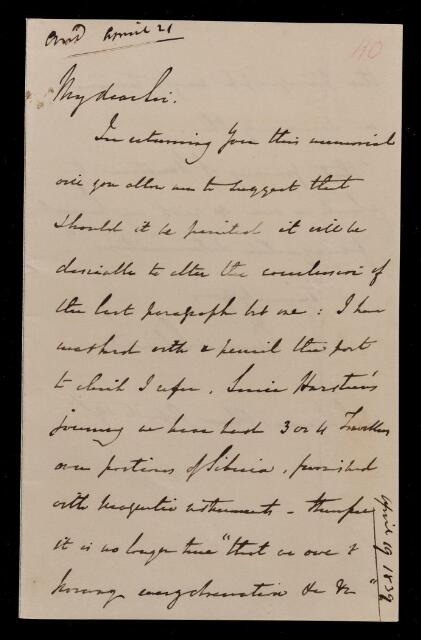 Ans'd April 21
40
My dear Sir.
In returning you this memorial
will you allow me to suggest that
should it be printed it will be
desirable to alter the conclusion of
the last paragraph but one: I have
marked with a pencil the part
to which I refer. Since Hansteen's
journey we have had 3 or 4 Travellers
over portions of Siberia, furnished
with magnetic instruments – therefore
it is no longer true "that we owe to
every observation &c &c"
April 19 1839